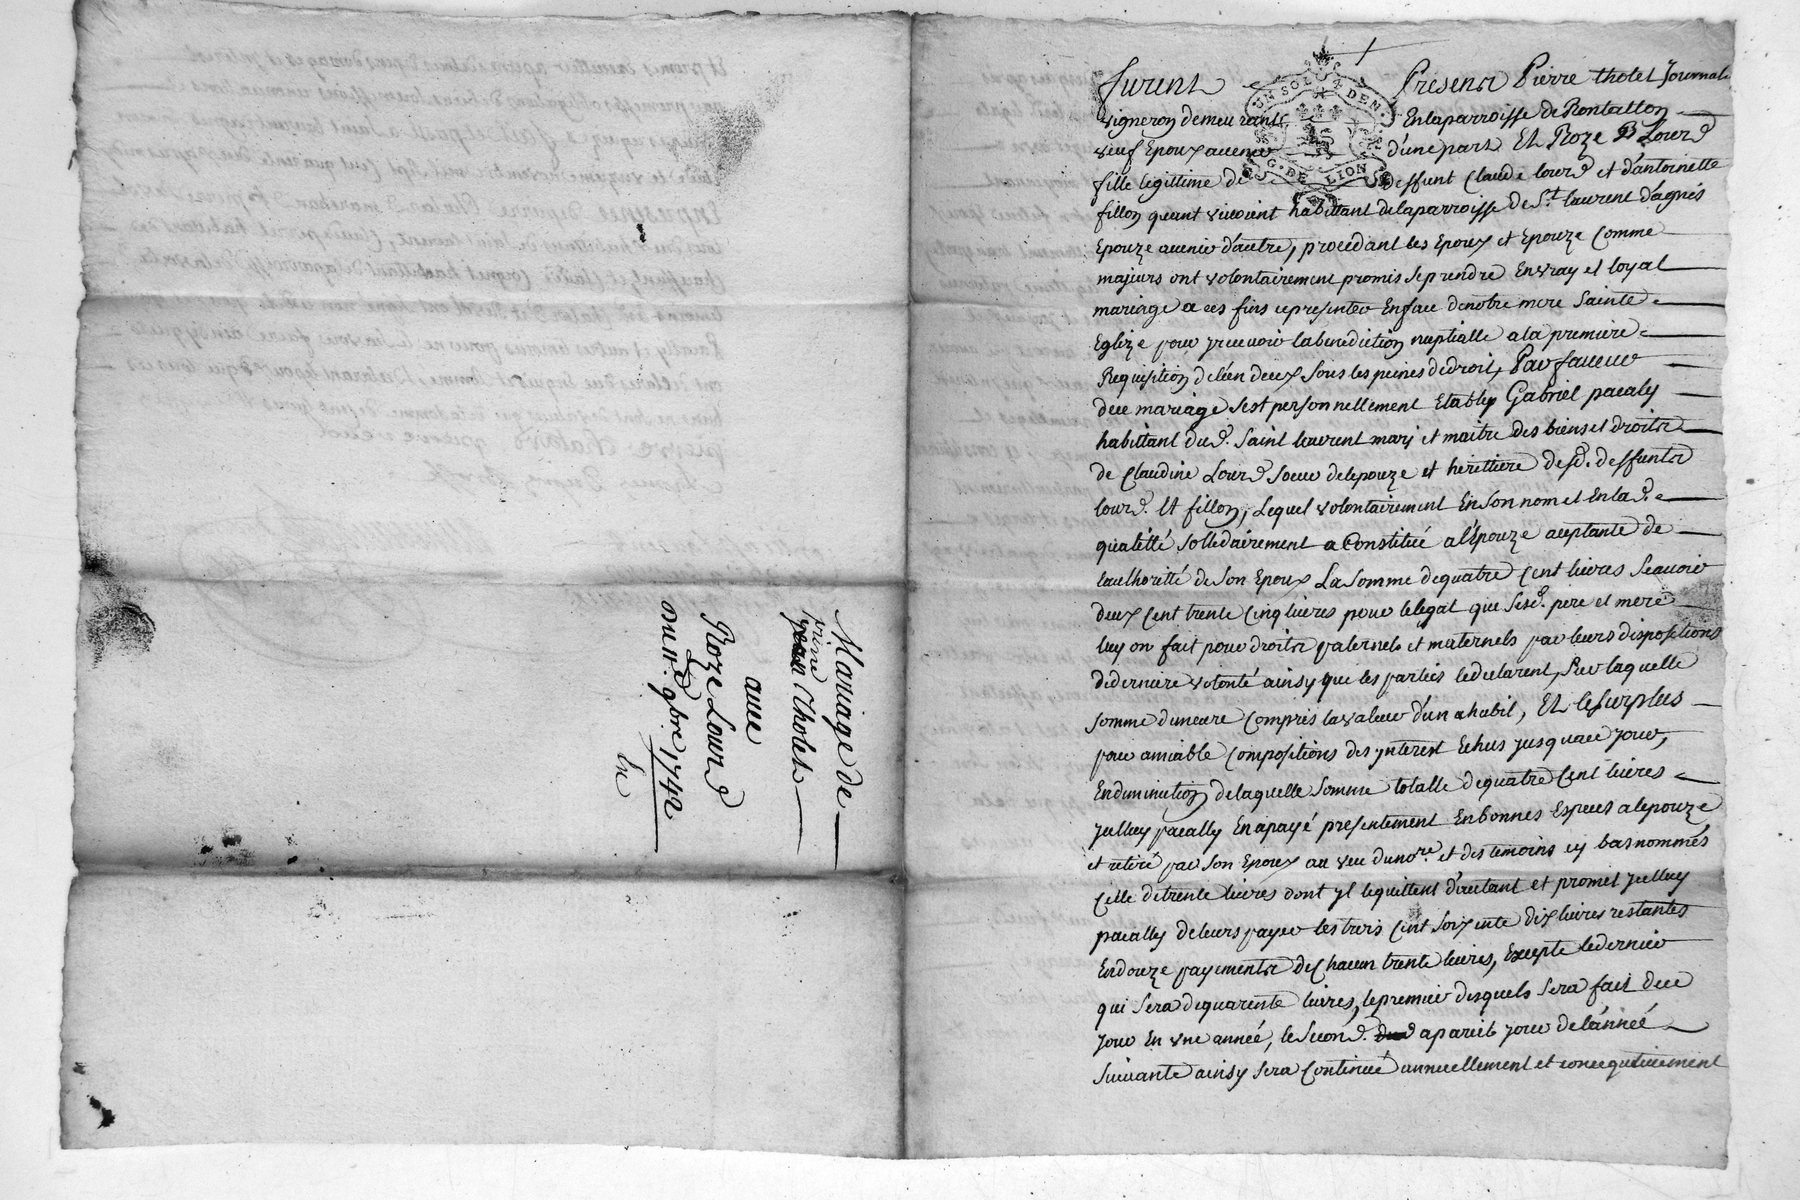 Mariage de
pierre Tholet
avec
Roze Lourd
Du 11e 9bre 1742
UN SOL 4 DEN.
G. DE LION
furent Presents Pierre tholet Journal.
vigneron demeurant En la parroisse de Rontallon
veuf Epoux avenir d'une part Et Roze Lourd
fille legittime de deffunt Claude lourd et d'antoinette
fillon quant vivoient habittant de la parroisse de St. laurent d'agnés
Epouze avenir d'autre, procedant les Epoux et Epouze Comme
majeurs ont volontairement promis se prendre En vray et loyal
mariage a ces fins se presenter En face de notre mere Sainte
Eglize pour y recevoir la benediction nuptialle a la premiere
Requisition de l'un deux sous les peines de droit, Par faveur
duce mariage s'est personnellement Etably Gabriel pacaly
habittant dud. Saint laurent mary et maitre des biens et droits
de Claudine Lourd soeur de lepouze et herittiere desd. deffunts
lourd. Et fillon, Lequel volontairement En son nom et En lad.
qualitté sollidairement a Constitué a l'Epouze aceptante de
lauthoritté de son Epoux La somme de quatre Cent livres scavoir
deux Cent trente Cinq livres pour le legat que sesd. pere et mere
luy on fait pour droits paternels et maternels par leurs dispositions
de derniere volonté ainsy que les parties le declarent, sur laquelle
somme duneure Compris la valeur d'un habit, Et le surplus
pour amiable Compositions des ynterest Echus jusqua ce jour,
En diminution de laquelle somme totalle de quatre Cent livres
yceluy pacally En a payé presentement En bonnes Especes a lepouze
et retiré par son Epoux au veu du nore. et des temoins cy bas nommés
Celle de trente livres dont yl le quittent d'autant et promet yceluy
pacally de leurs payer les trois Cent soixente dix livres restantes
En douze payements de Chacun trente livres, Excepte le dernier
qui sera de quarente livres, le premier desquels sera fait duce
jour En une année, le second a pareil jour de l'année
suivante ainsy sera Continué annuellement et consequtivement